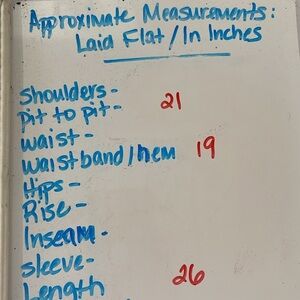 Approximate Measurements:
Laid Flat / In Inches
Shoulders -
Pit to pit - 21
Waist -
Waistband / hem 19
Hips -
Rise -
Inseam -
Sleeve -
Length 26